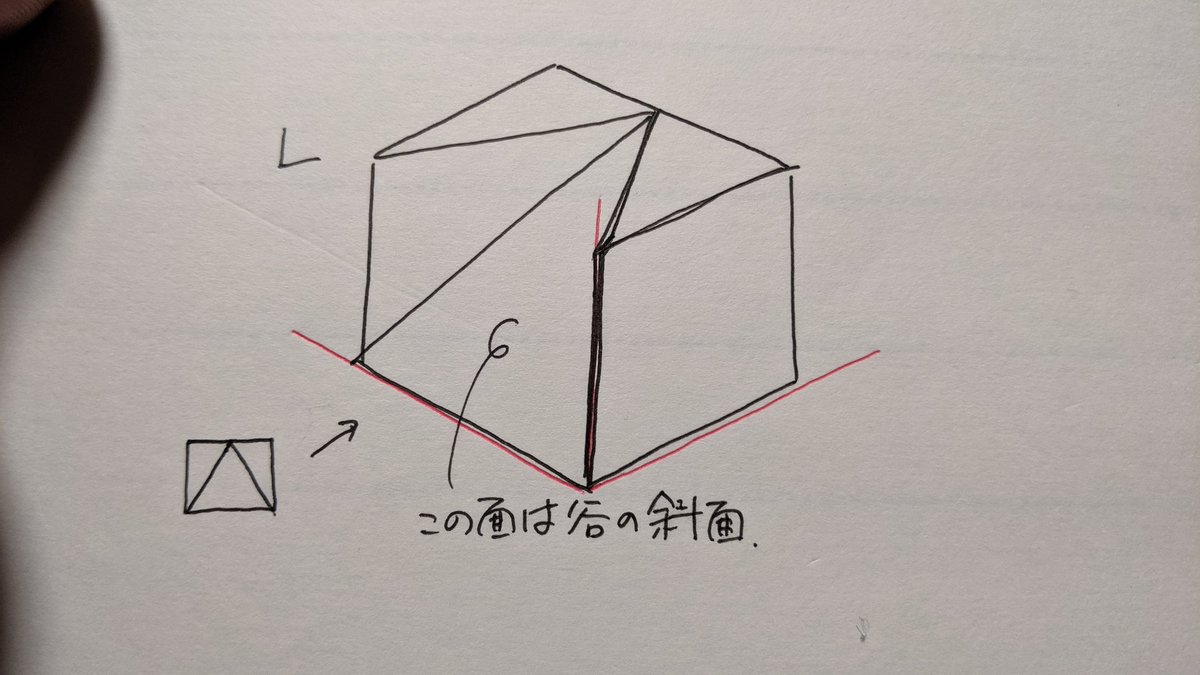 L
この面は谷の斜面.